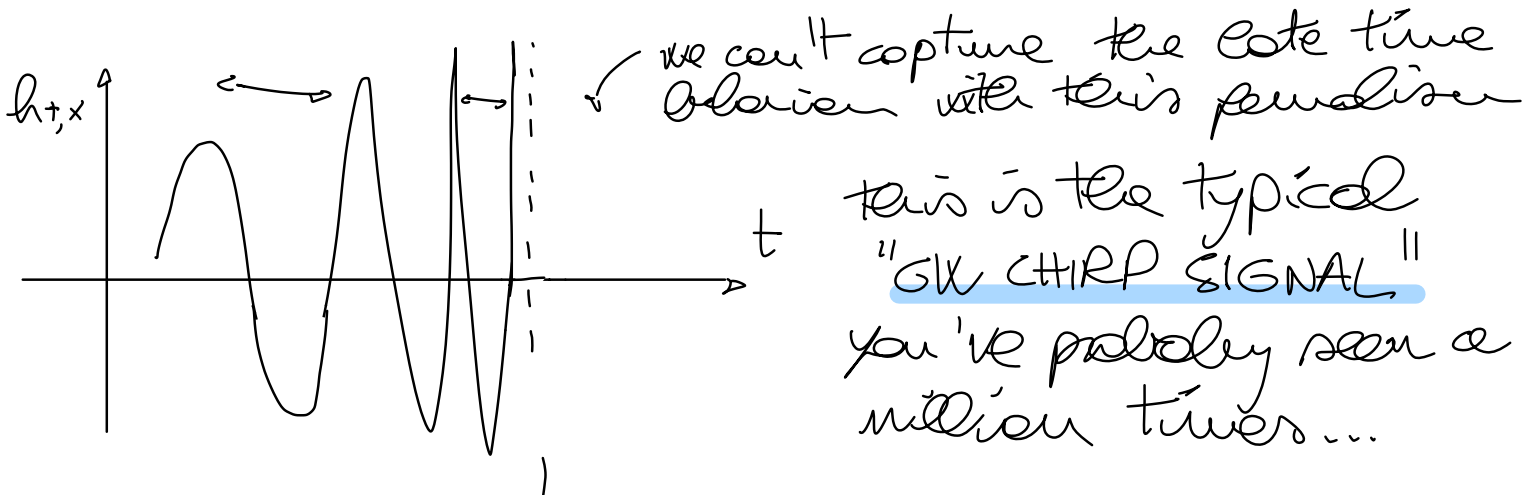 h+,x
we can't capture the late time
behavior with this formalism
t
this is the typical
"GW CHIRP SIGNAL"
you've probably seen a
million times...